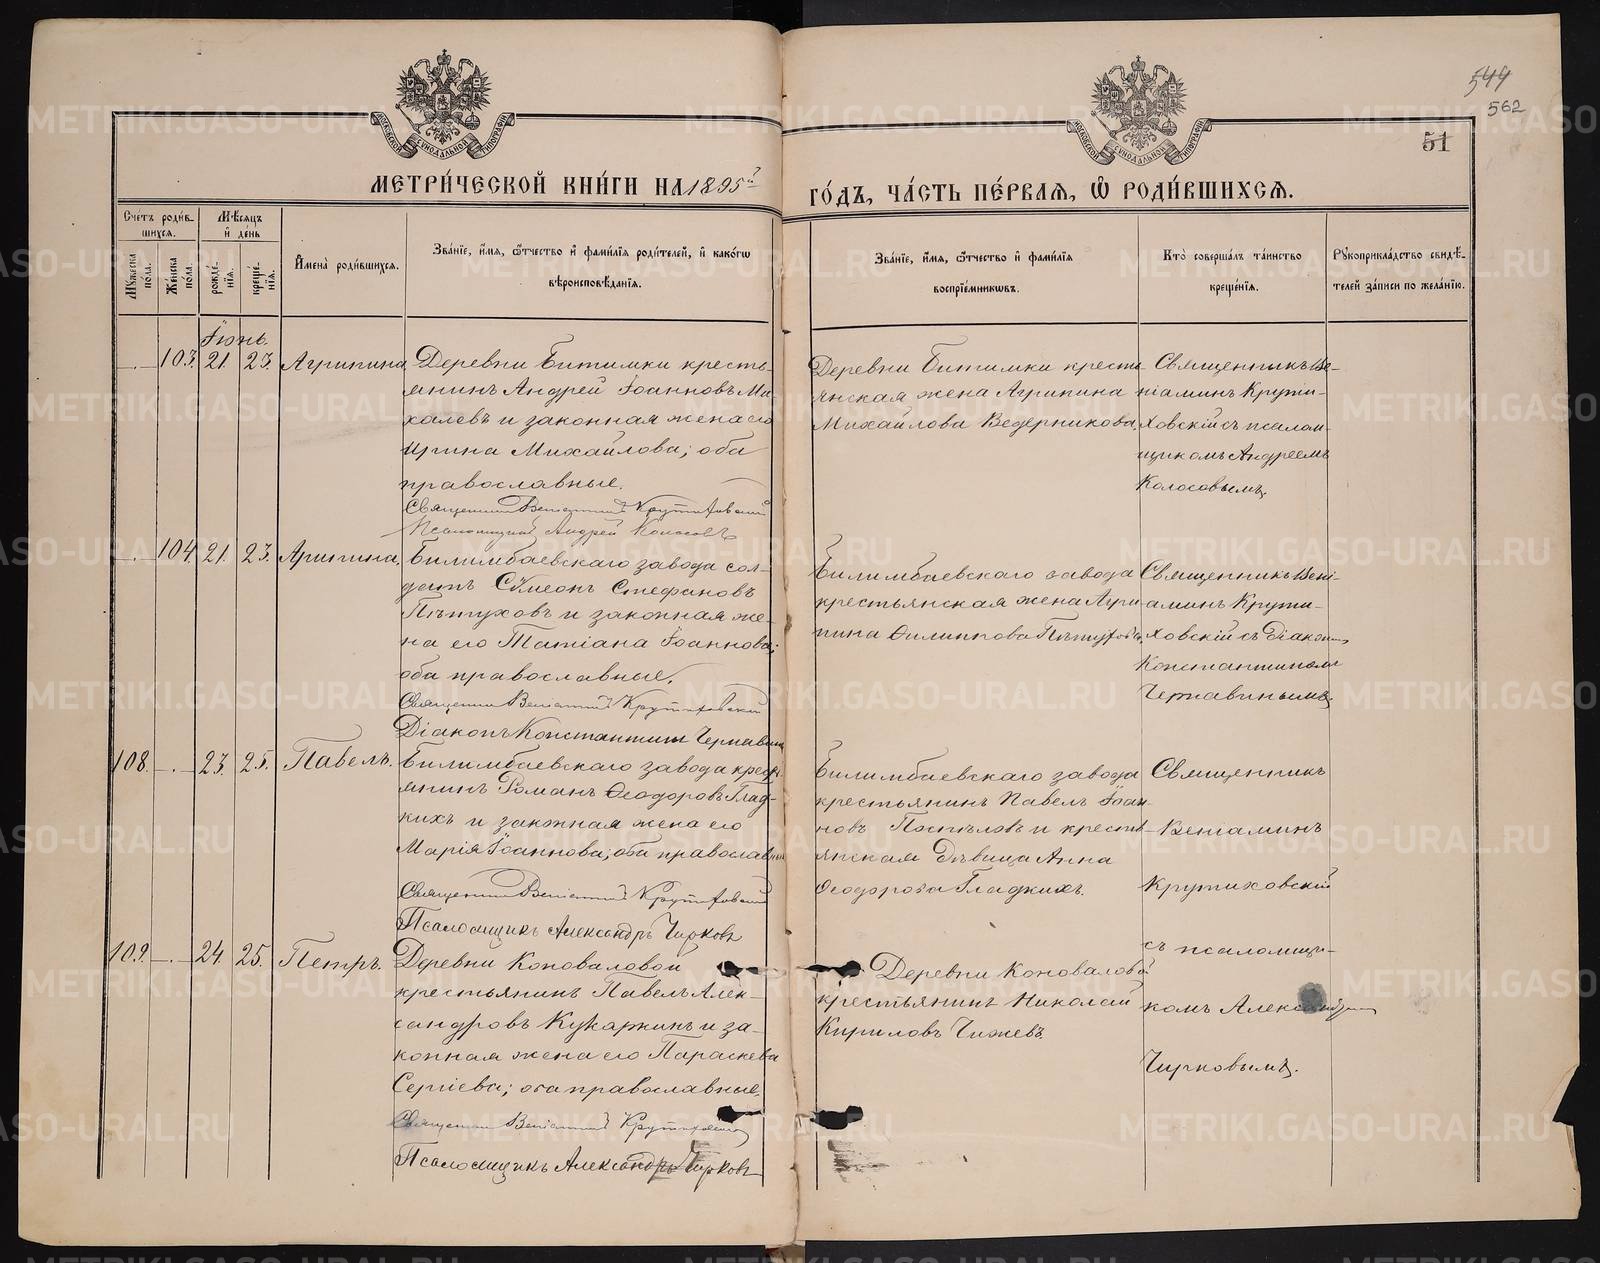 544
562
51
МОСКОВСКОЙ СѴНОДАЛЬНОЙ ТИПОГРАФІИ
МОСКОВСКОЙ СѴНОДАЛЬНОЙ ТИПОГРАФІИ
МЕТРИ́ЧЕСКОЙ КНИ́ГИ НА 1895й
ГО́ДЪ, ЧА́СТЬ ПЕ́РВАЯ, Ѽ РОДИ́ВШИХСЯ.
Сче́тъ роди́в-
шихся.
Мѣ́сяцъ
и҆ де́нь
Мꙋ́жеска по́ла.
Же́нска по́ла.
рожде́нїѧ.
креще́нїѧ.
И҆мена̀ роди́вшихся.
Зва́нїе, и҆́мѧ, ѻ҆́тчество и҆ фами́лїѧ роди́телей, и҆ како́гѡ
вѣроисповѣ́данїѧ.
Зва́нїе, и҆́мѧ, ѻ҆́тчество и҆ фами́лїѧ
воспрїе́мникѡвъ.
Кто̀ соверша́лъ та́инство
креще́нїѧ.
Рꙋкоприкла́дство свидѣ́-
телей за́писи по жела́нїю.
Іюнь.
103. 21. 23. Агрипина,
Деревни Битимки кресть-
янинъ Андрей Іоанновъ Ми-
халевъ и законная жена его
Ирина Михайлова; оба
православные.
Священникъ Веніаминъ Крутиховскій
Псаломщикъ Андрей Колосовъ
Деревни Битимки кресть-
янская жена Агрипина
Михайлова Ведерникова.
Священникъ Ве-
ніаминъ Крути-
ховскій съ псалом-
щикомъ Андреемъ
Колосовымъ.
104. 21. 23. Агрипина,
Билимбаевскаго завода сол-
датъ Сѵмеонъ Стефановъ
Пѣтуховъ и законная же-
на его Татіана Іоаннова;
оба православные.
Священникъ Веніаминъ Крутиховскій
Діаконъ Константинъ Чернавинъ
Билимбаевскаго завода
крестьянская жена Агри-
пина Филиппова Пѣтухова.
Священникъ Вені-
аминъ Крути-
ховскій съ діакономъ
Константиномъ
Чернавинымъ.
108. 23. 25. Павелъ.
Билимбаевскаго завода кресть-
янинъ Романъ Ѳеодоровъ Глад-
кихъ и законная жена его
Марія Іоаннова; оба православные
Священникъ Веніаминъ Крутиховскій
Псаломщикъ Александръ Чирковъ
Билимбаевскаго завода
крестьянинъ Павелъ Іоан-
новъ Поспѣловъ и кресть-
янская дѣвица Анна
Ѳеодорова Гладкихъ.
Священникъ
Веніаминъ
Крутиховскій
съ псаломщи-
комъ Александромъ
Чирковымъ.
109. 24. 25. Петръ.
Деревни Коноваловой
крестьянинъ Павелъ Алек-
сандровъ Кукаркинъ и за-
конная жена его Параскева
Сергіева; оба православные.
Священникъ Веніаминъ Крутиховскій
Псаломщикъ Александръ Чирковъ
Деревни Коноваловой
крестьянинъ Николай
Кириловъ Чижевъ.
METRIKI.GASO-URAL.RU